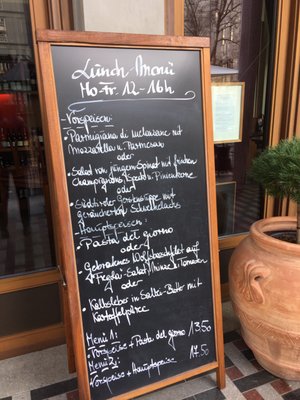 Lunch Menü
Mo-Fr. 12-16h
- Vorspeisen -
- Parmigiana di Melanzane mit
Mozzarella und Parmesan
oder
- Salat von jungem Spinat mit frischen
Champignons, Speck u. Pinienkerne
oder
- Südtiroler Gerstensuppe mit
geräuchertem Schweinelachs
- Hauptspeisen:
- Pasta del giorno
oder
- Gebratenes Wolfsbarschfilet auf
Fregola-Salat, Minze u. Tomaten
oder
- Kalbsleber in Salbei-Butter mit
Kartoffelpüree
Menü 1:
- Vorspeise + Pasta del giorno 13.50
Menü 2:
- Vorspeise + Hauptspeise 17.50